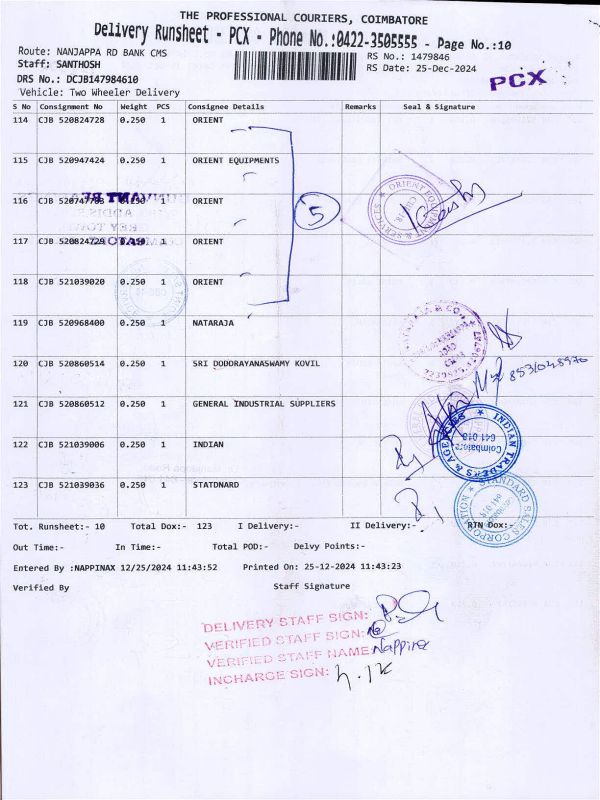 THE PROFESSIONAL COURIERS, COIMBATORE
Delivery Runsheet - PCX - Phone No.:0422-3505555 - Page No.:10
Route: NANJAPPA RD BANK CMS
RS No.: 1479846
Staff: SANTHOSH
RS Date: 25-Dec-2024
PCX
DRS No.: DCJB147984610
Vehicle: Two Wheeler Delivery
S No Consignment No Weight PCS Consignee Details Remarks Seal & Signature
114 CJB 520824728 0.250 1 ORIENT
115 CJB 520947424 0.250 1 ORIENT EQUIPMENTS
116 CJB 520747783 0.250 1 ORIENT
5
ORIENT EQUIPMENT & SERVICES
117 CJB 520824729 0.250 1 ORIENT
118 CJB 521039020 0.250 1 ORIENT
119 CJB 520968400 0.250 1 NATARAJA
120 CJB 520860514 0.250 1 SRI DODDRAYANASWAMY KOVIL
121 CJB 520860512 0.250 1 GENERAL INDUSTRIAL SUPPLIERS
122 CJB 521039006 0.250 1 INDIAN
INDIAN TRADERS & AGENCIES
Coimbatore
641 018
123 CJB 521039036 0.250 1 STATDNARD
STANDARD SALES CORPORATION
Tot. Runsheet:- 10 Total Dox:- 123 I Delivery:- II Delivery:- RTN Dox:-
Out Time:- In Time:- Total POD:- Delvy Points:-
Entered By :NAPPINAX 12/25/2024 11:43:52 Printed On: 25-12-2024 11:43:23
Verified By Staff Signature
DELIVERY STAFF SIGN:
VERIFIED STAFF SIGN:
VERIFIED STAFF NAME: Nappina
INCHARGE SIGN: